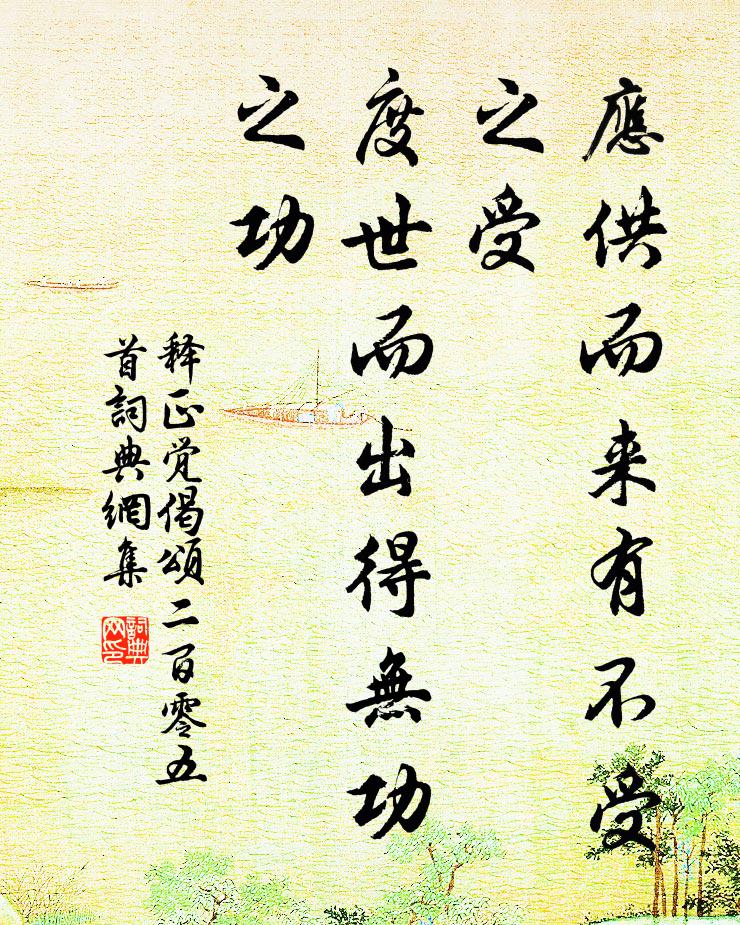 應供而来有不受
之受
度世而出得無功
之功
释正觉偈頌二百零五
首詞典網集
詞典
网印